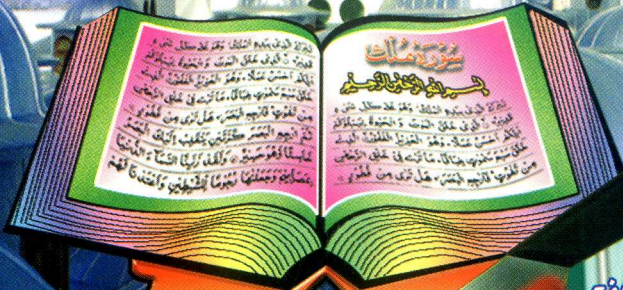 سُوْرَة مُلْك
بسم الله الرحمن الرحيم
تبرك الذي بيده الملك وهو على كل شيء
قدير الذي خلق الموت والحيوة ليبلوكم
ايكم احسن عملا وهو العزيز الغفور الذي
خلق سبع سموت طباقا ما ترى في خلق الرحمن
من تفوت فارجع البصر هل ترى من فطور
تبرك الذي بيده الملك وهو على كل شيء
قدير الذي خلق الموت والحيوة ليبلوكم
ايكم احسن عملا وهو العزيز الغفور الذي
خلق سبع سموت طباقا ما ترى في خلق الرحمن
من تفوت فارجع البصر هل ترى من فطور
ثم ارجع البصر كرتين ينقلب اليك البصر
خاسئا وهو حسير ولقد زينا السماء الدنيا
بمصابيح وجعلنها رجوما للشيطين واعتدنا لهم